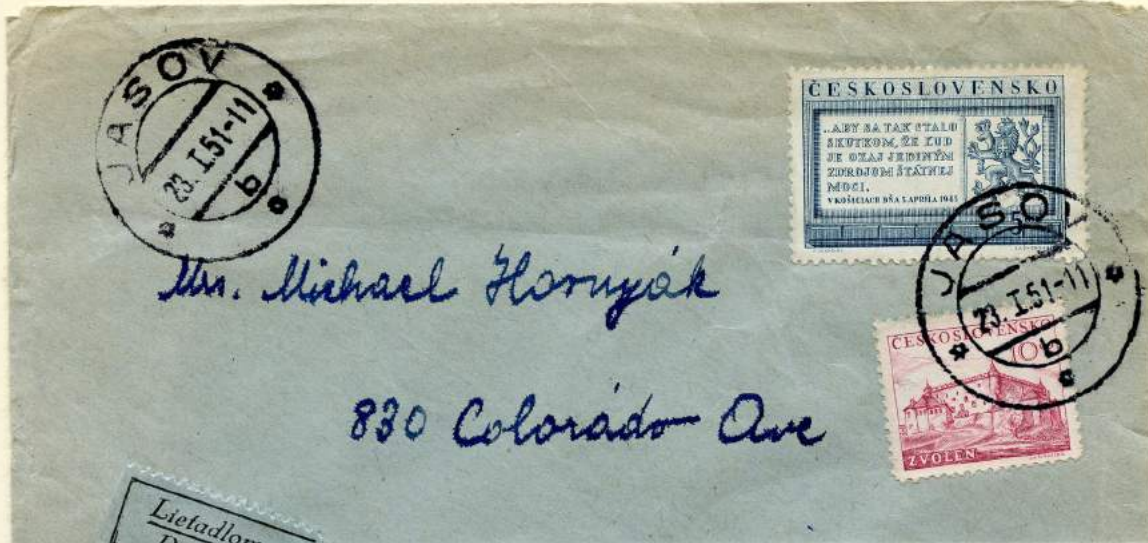 JASOV
23. I. 51-11
b
ČESKOSLOVENSKO
„ABY SA TAK STALO
SKUTKOM, ŽE ĽUD
JE OZAJ JEDINÝM
ZDROJOM ŠTÁTNEJ
MOCI.
V KOŠICIACH DŇA 5. APRÍLA 1945
JASOV
23. I. 51-11
b
Mr. Michael Hornyák
ČESKOSLOVENSKO
10
ZVOLEN
830 Colorádo Ave
Lietadlom